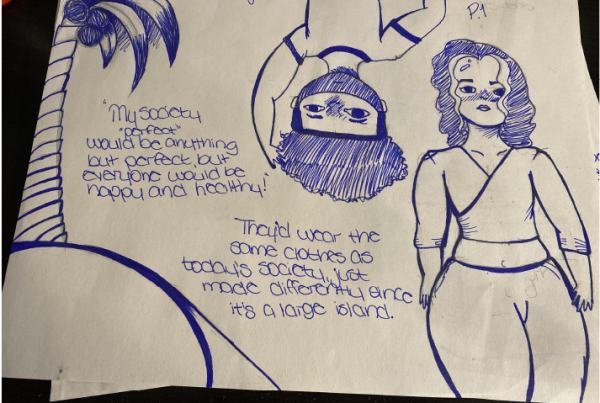 P.1
"My society
"perfect"
would be anything
but perfect, but
everyone would be
happy and healthy!"
They'd wear the
same clothes as
today's society, just
made differently since
it's a large island.